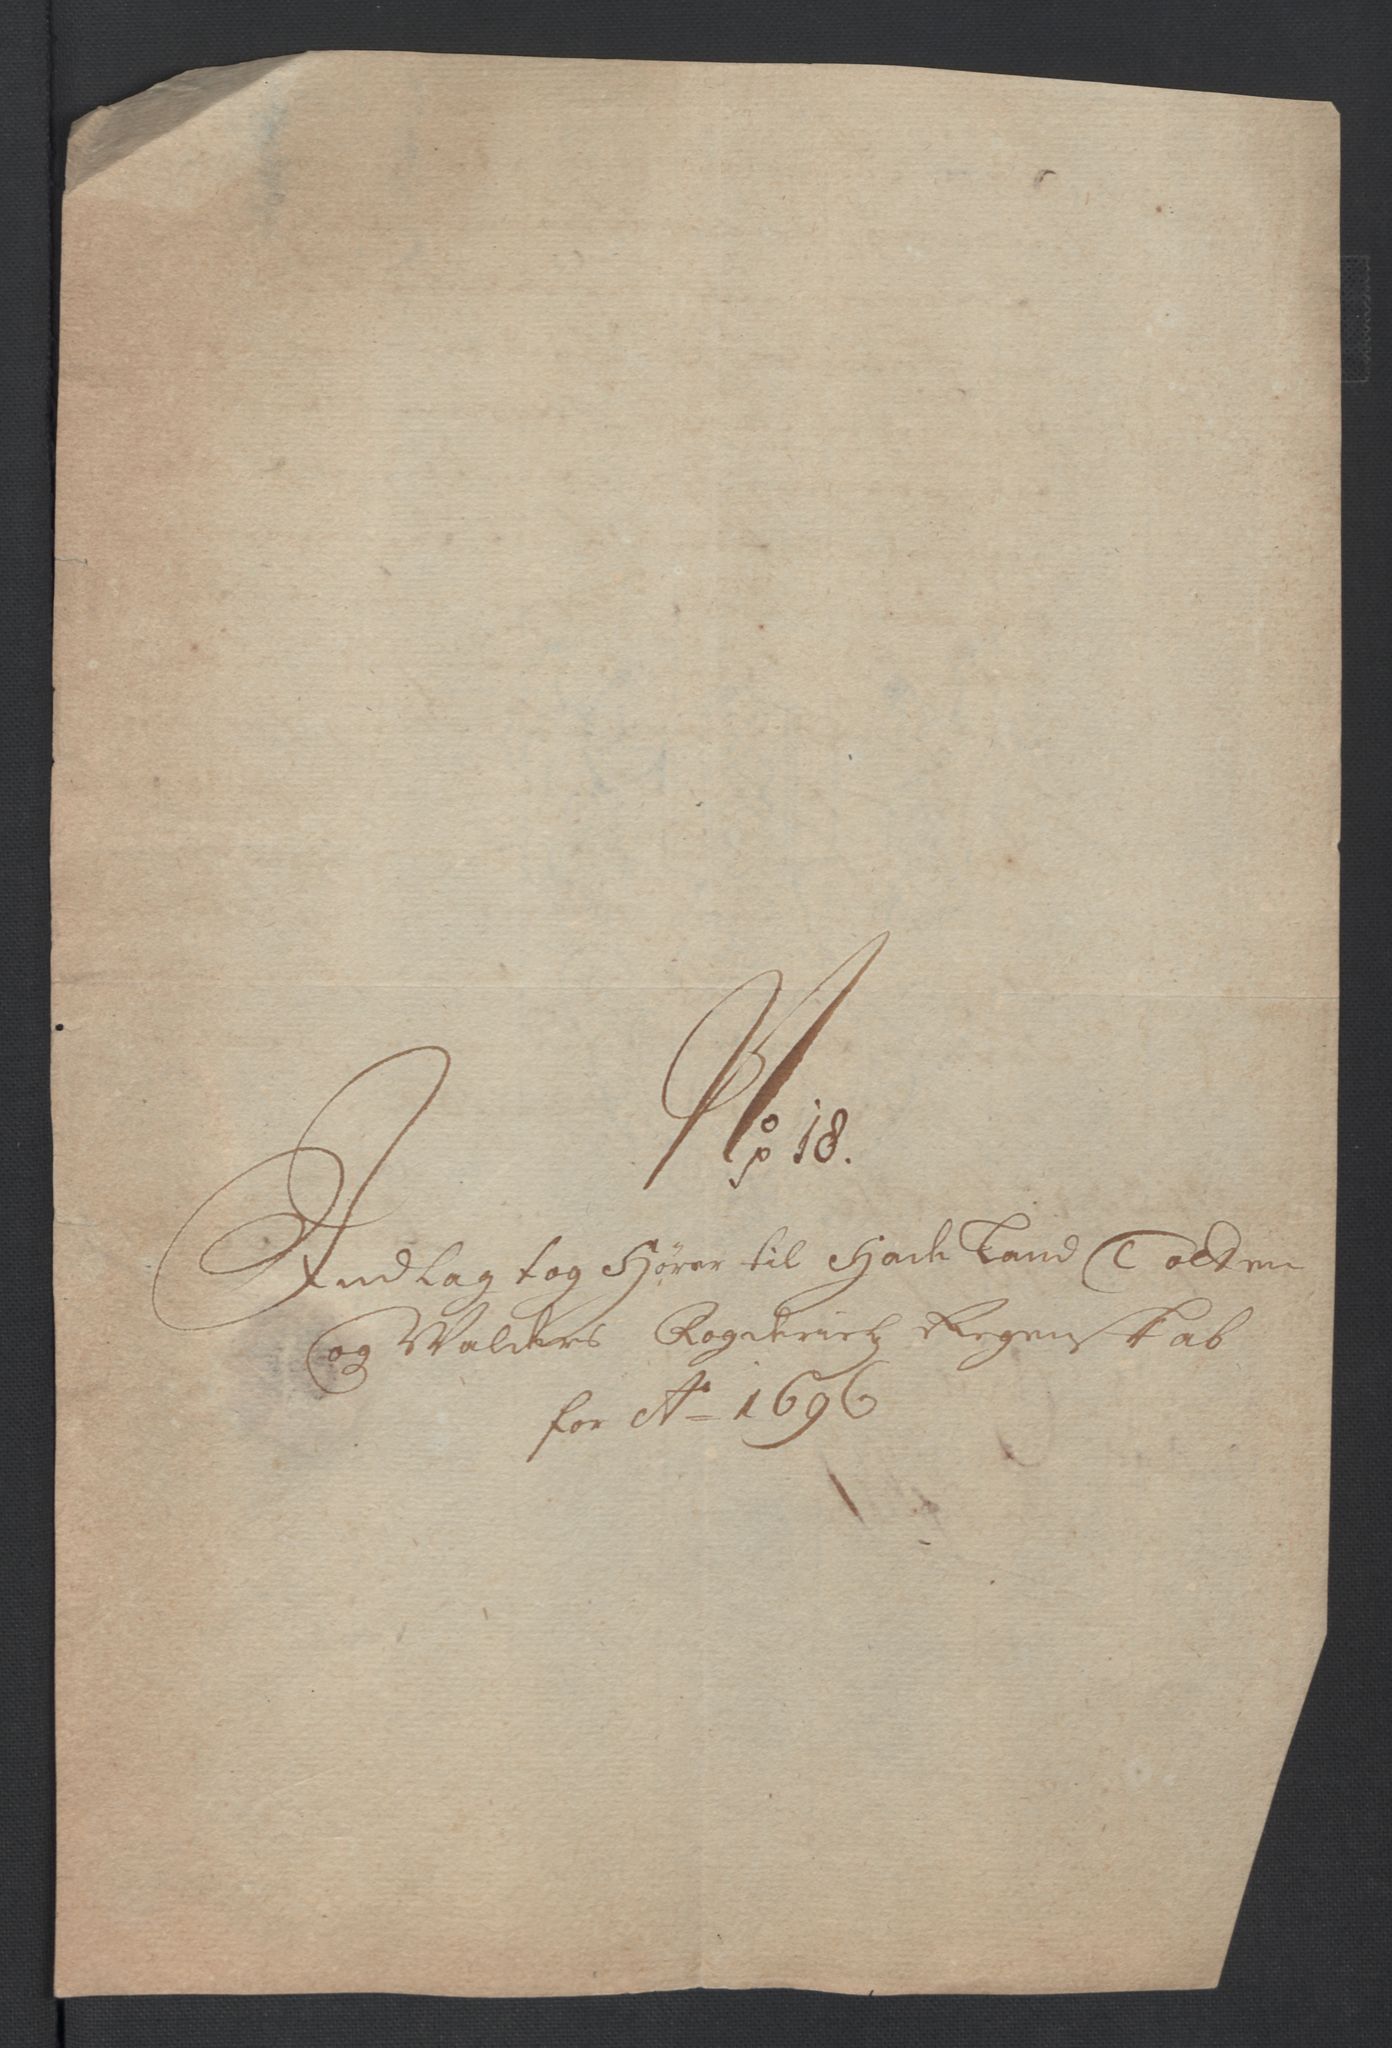 No 18.
Indlag tog Hører til Hade Land Toten
og Walders Fogderietz Regenskab
for Ao 1696